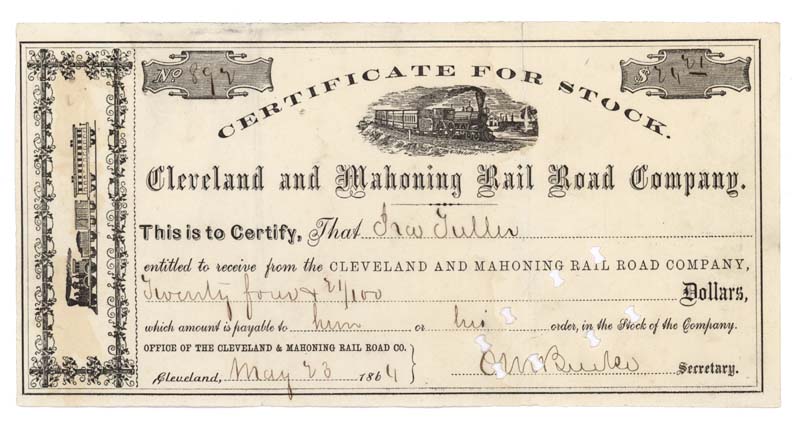 No. 892
$24 21
CERTIFICATE FOR STOCK.
Cleveland and Mahoning Rail Road Company.
This is to Certify, That Ira Fuller
entitled to receive from the CLEVELAND AND MAHONING RAIL ROAD COMPANY,
Twenty four & 21/100 Dollars,
which amount is payable to him or his order, in the Stock of the Company.
OFFICE OF THE CLEVELAND & MAHONING RAIL ROAD CO.
Cleveland, May 23 1864
Secretary.